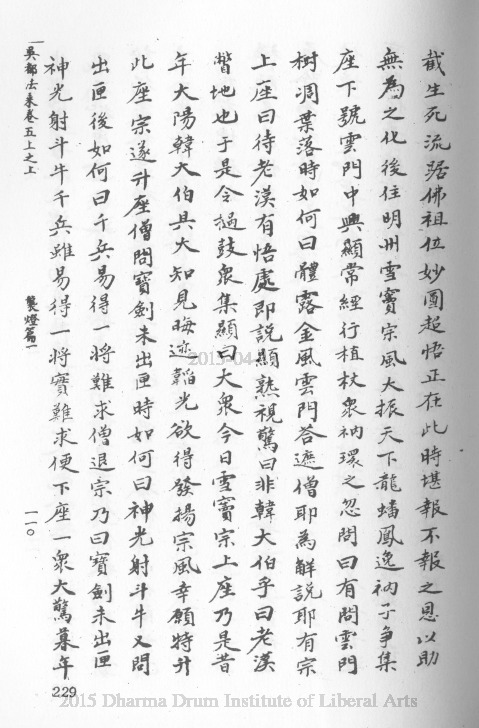 截生死流踞佛祖位妙圓超悟正在此時堪報不報之恩以助
無為之化後住明州雪竇宗風大振天下龍蟠鳳逸衲子爭集
座下號雲門中興顯常經行植杖衆衲環之忽問曰有問雲門
樹凋葉落時如何曰體露金風雲門荅遮僧耶為解說耶有宗
上座曰待老漢有悟處即說顯熟視驚曰非韓大伯乎曰老漢
瞥地也于是令撾鼓衆集顯曰大衆今日雪竇宗上座乃是昔
年大陽韓大伯具大知見晦迹韜光欲得發揚宗風幸願特升
此座宗遂升座僧問寶劍未出匣時如何曰神光射斗牛又問
出匣後如何曰千兵易得一將難求僧退宗乃曰寶劍未出匣
神光射斗牛千兵雖易得一將實難求便下座一衆大驚暮年
吳都法乘卷五上之上
襲燈篇一
一一〇
229
2015 Dharma Drum Institute of Liberal Arts